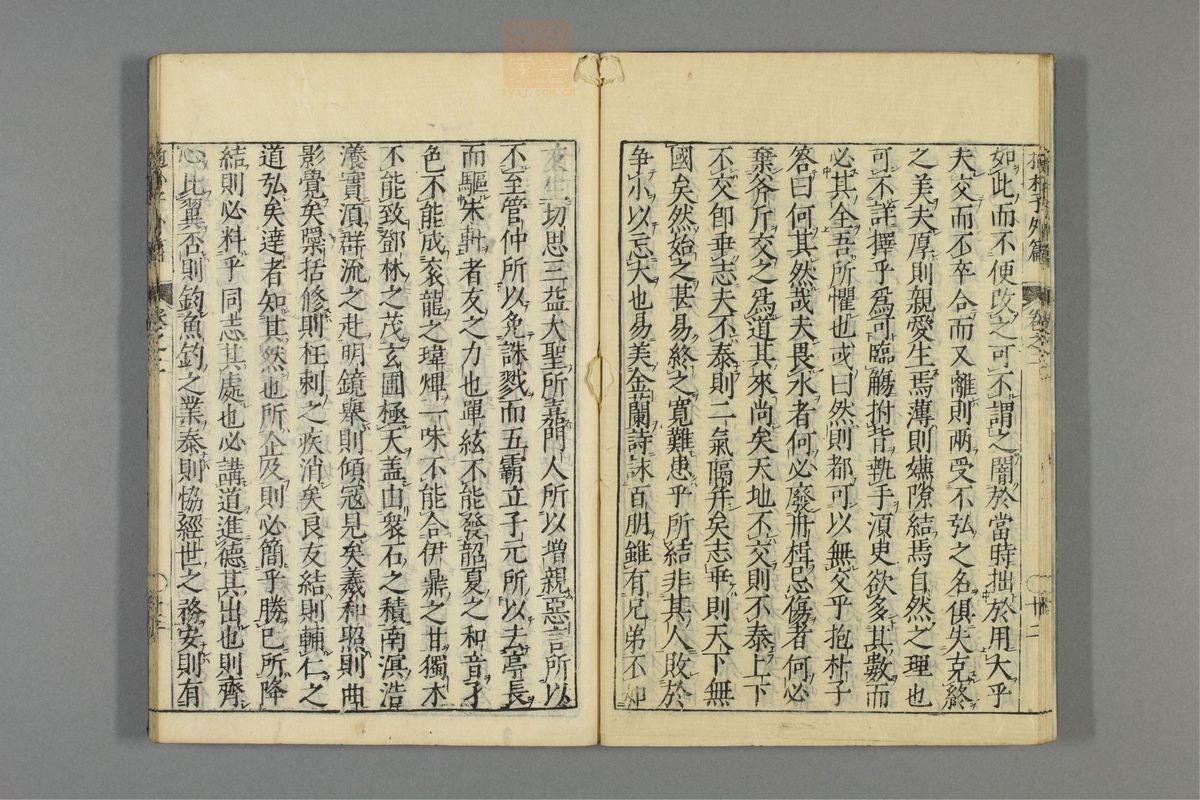 抱朴子外篇 卷之二 廿二
如此而不便改之可不謂之闇於當時拙於用大乎
夫交而不卒合而又離則兩受不弘之名俱失克終
之美夫厚則親愛生焉薄則嫌隙結焉自然之理也
可不詳擇乎爲可臨觴拊背執手須臾欲多其數而
必其全吾所懼也或曰然則都可以無交乎抱朴子
答曰何其然哉夫畏水者何必廢舟楫忌傷者何必
棄斧斤交之爲道其來尚矣天地不交則不泰上下
不交卽乖志夫不泰則二氣隔幷矣志乖則天下無
國矣然始之甚易終之寬難患乎所結非其人敗於
争小以忘大也易美金蘭詩詠百朋雖有兄弟不如
友生一切思三益大聖所嘉門人所以增親惡言所以
不至管仲所以免誅戮而五霸立子元所以去亭長
而驅朱軒者友之力也單絃不能發韶夏之和音孑
色不能成衮龍之瑋燁一味不能合伊鼎之甘獨木
不能致鄧林之茂玄圃極天盖由衆石之積南溟浩
瀁實須群流之赴明鏡舉則傾冠見矣羲和照則曲
影覺矣檃括修則枉刺之疾消矣良友結則輔仁之
道弘矣達者知其然也所企及則必簡乎勝己所降
結則必料乎同志其處也必講道進德其出也則齊
心比翼否則鈞魚釣之業泰則恊經世之務安則有